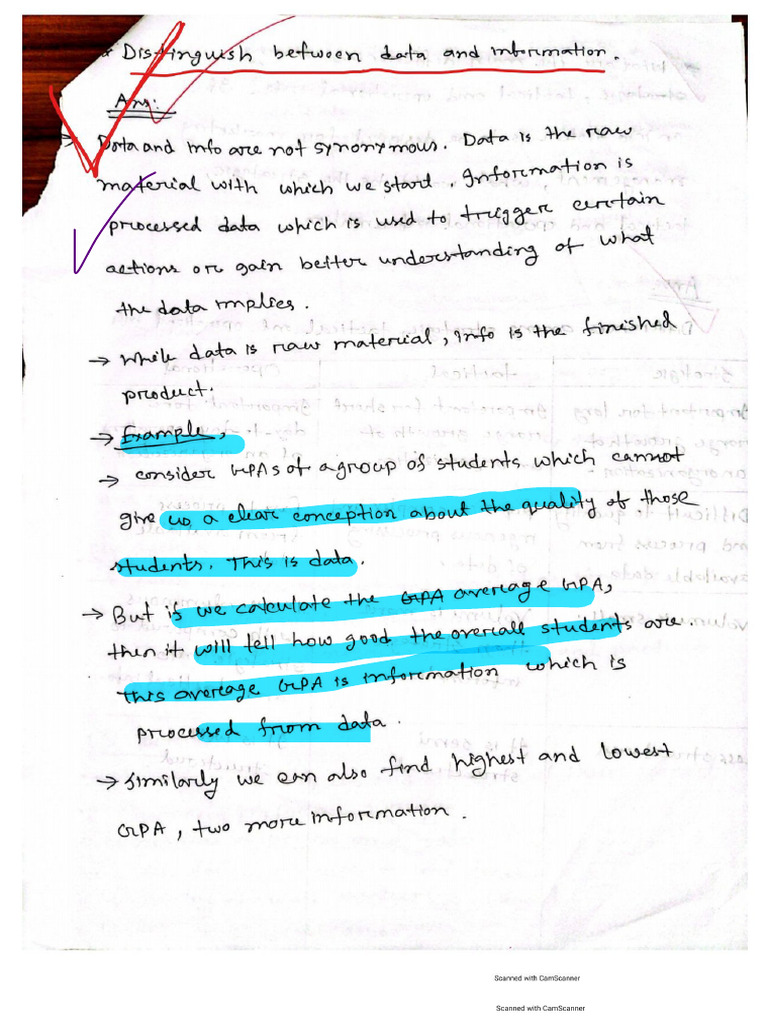 * Distinguish between data and information.
Ans:
→ Data and info are not synonymous. Data is the raw
material with which we start. Information is
processed data which is used to trigger certain
actions or gain better understanding of what
the data implies.
→ While data is raw material, info is the finished
product.
→ Example,
→ consider GPAs of a group of students which cannot
give us a clear conception about the quality of those
students. This is data.
→ But if we calculate the GPA average GPA,
then it will tell how good the overall students are.
This average GPA is information which is
processed from data.
→ Similarly we can also find highest and lowest
GPA, two more information.
Scanned with CamScanner
Scanned with CamScanner